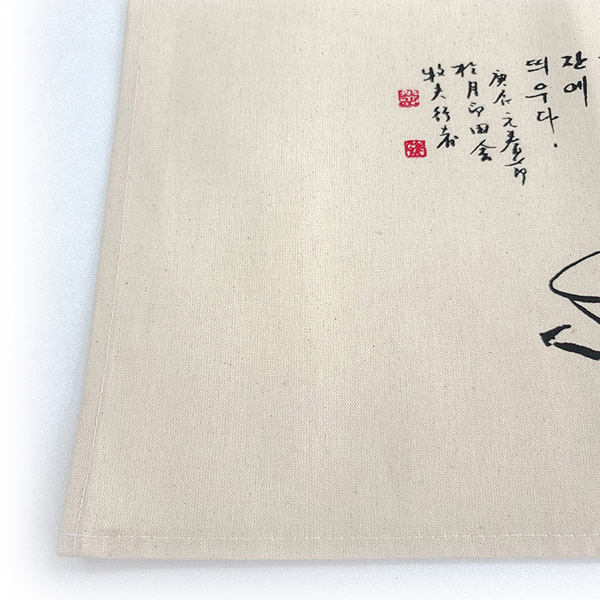 잔에
띄우다.
庚辰元春節
於月印田舍
牧夫行者